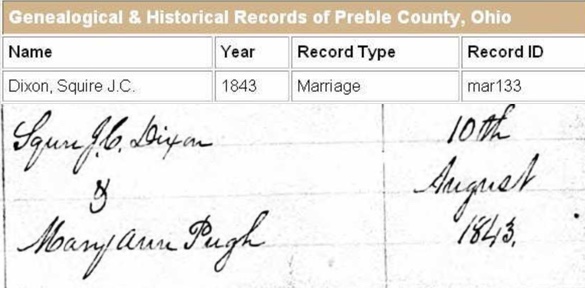 Genealogical & Historical Records of Preble County, Ohio
Name Year Record Type Record ID
Dixon, Squire J.C. 1843 Marriage mar133
Squire J. C. Dixon 10th
& August
Mary Ann Pugh 1843.